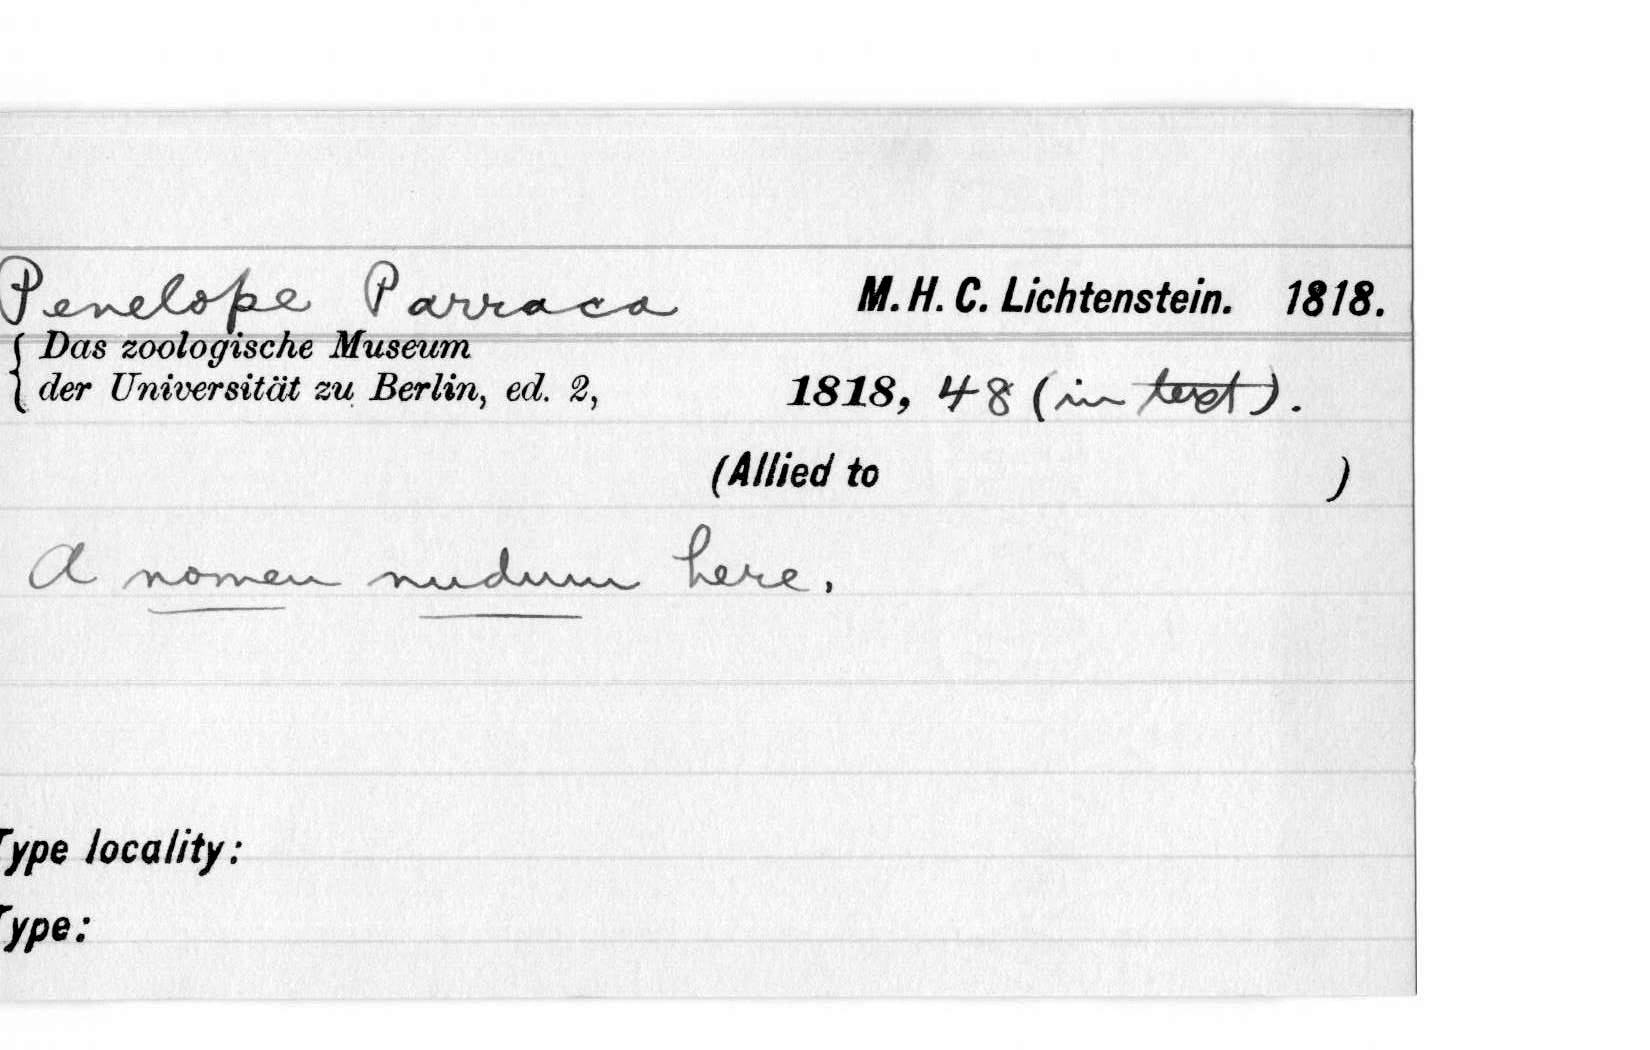 Penelope Parraca M. H. C. Lichtenstein. 1818.
Das zoologische Museum
der Universität zu Berlin, ed. 2, 1818, 48 (in text).
(Allied to )
A nomen nudum here.
Type locality:
Type: